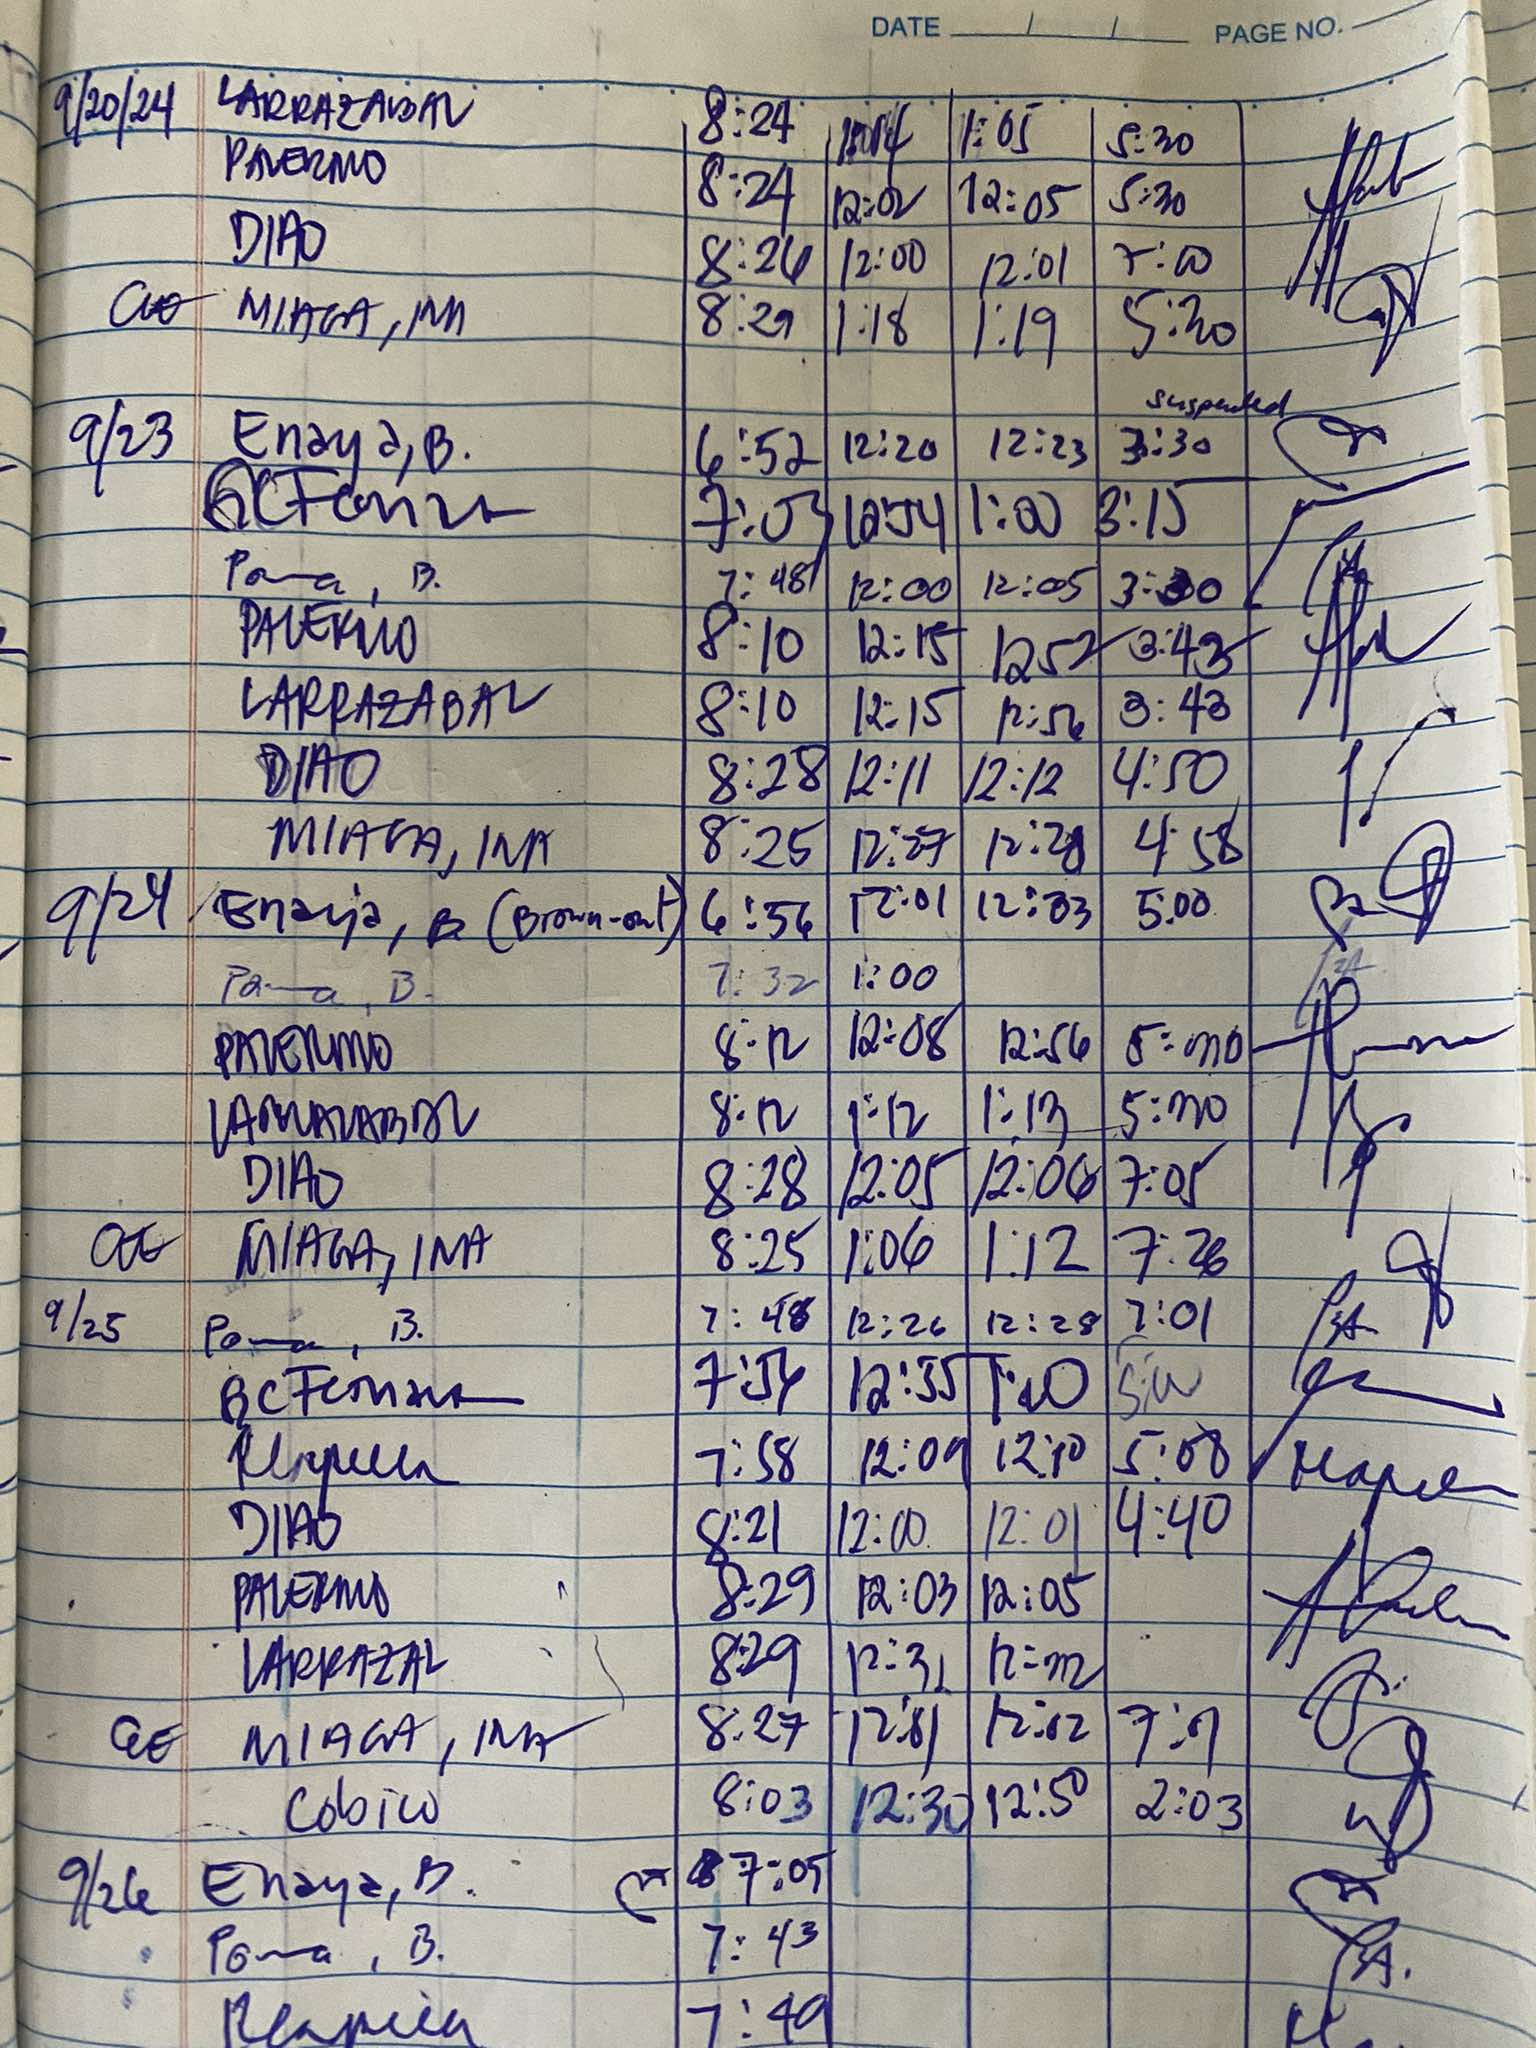 DATE / / PAGE NO.
9/20/24 LARRAZABAL 8:24 1:05 5:30
PALERMO 8:24 12:02 12:05 5:30
DIAO 8:26 12:00 12:01 7:00
MIAGA, INA 8:29 1:18 1:19 5:30
suspended
9/23 Enaya, B. 6:52 12:20 12:23 3:30
7:03 12:54 1:00 3:15
B. 7:48 12:00 12:05 3:30
PALERMO 8:10 12:15 12 52 3:43
LARRAZABAL 8:10 12:15 12:56 3:43
DIAO 8:28 12:11 12:12 4:50
MIAGA, INA 8:25 12:27 12:28 4:58
9/24 Enaya, B (Brown-out) 6:56 12:01 12:03 5:00
B. 7:32 1:00
PALERMO 8:12 12:08 12:56 5:30
LARRAZABAL 8:12 1:12 1:13 5:30
DIAO 8:28 12:05 12:06 7:05
MIAGA, INA 8:25 1:06 1:12 7:26
9/25 B. 7:48 12:26 12:28 7:01
7:54 12:35
7:58 12:09 12:10 5:08
DIAO 8:21 12:00 12:01 4:40
PALERMO 8:29 12:03 12:05
LARRAZAL 8:29 12:31 12:32
MIAGA, INA 8:27 12:01 12:02
Cobico 8:03 12:30 12:50 2:03
9/26 Enaya, B. 7:05
B. 7:43
7:49